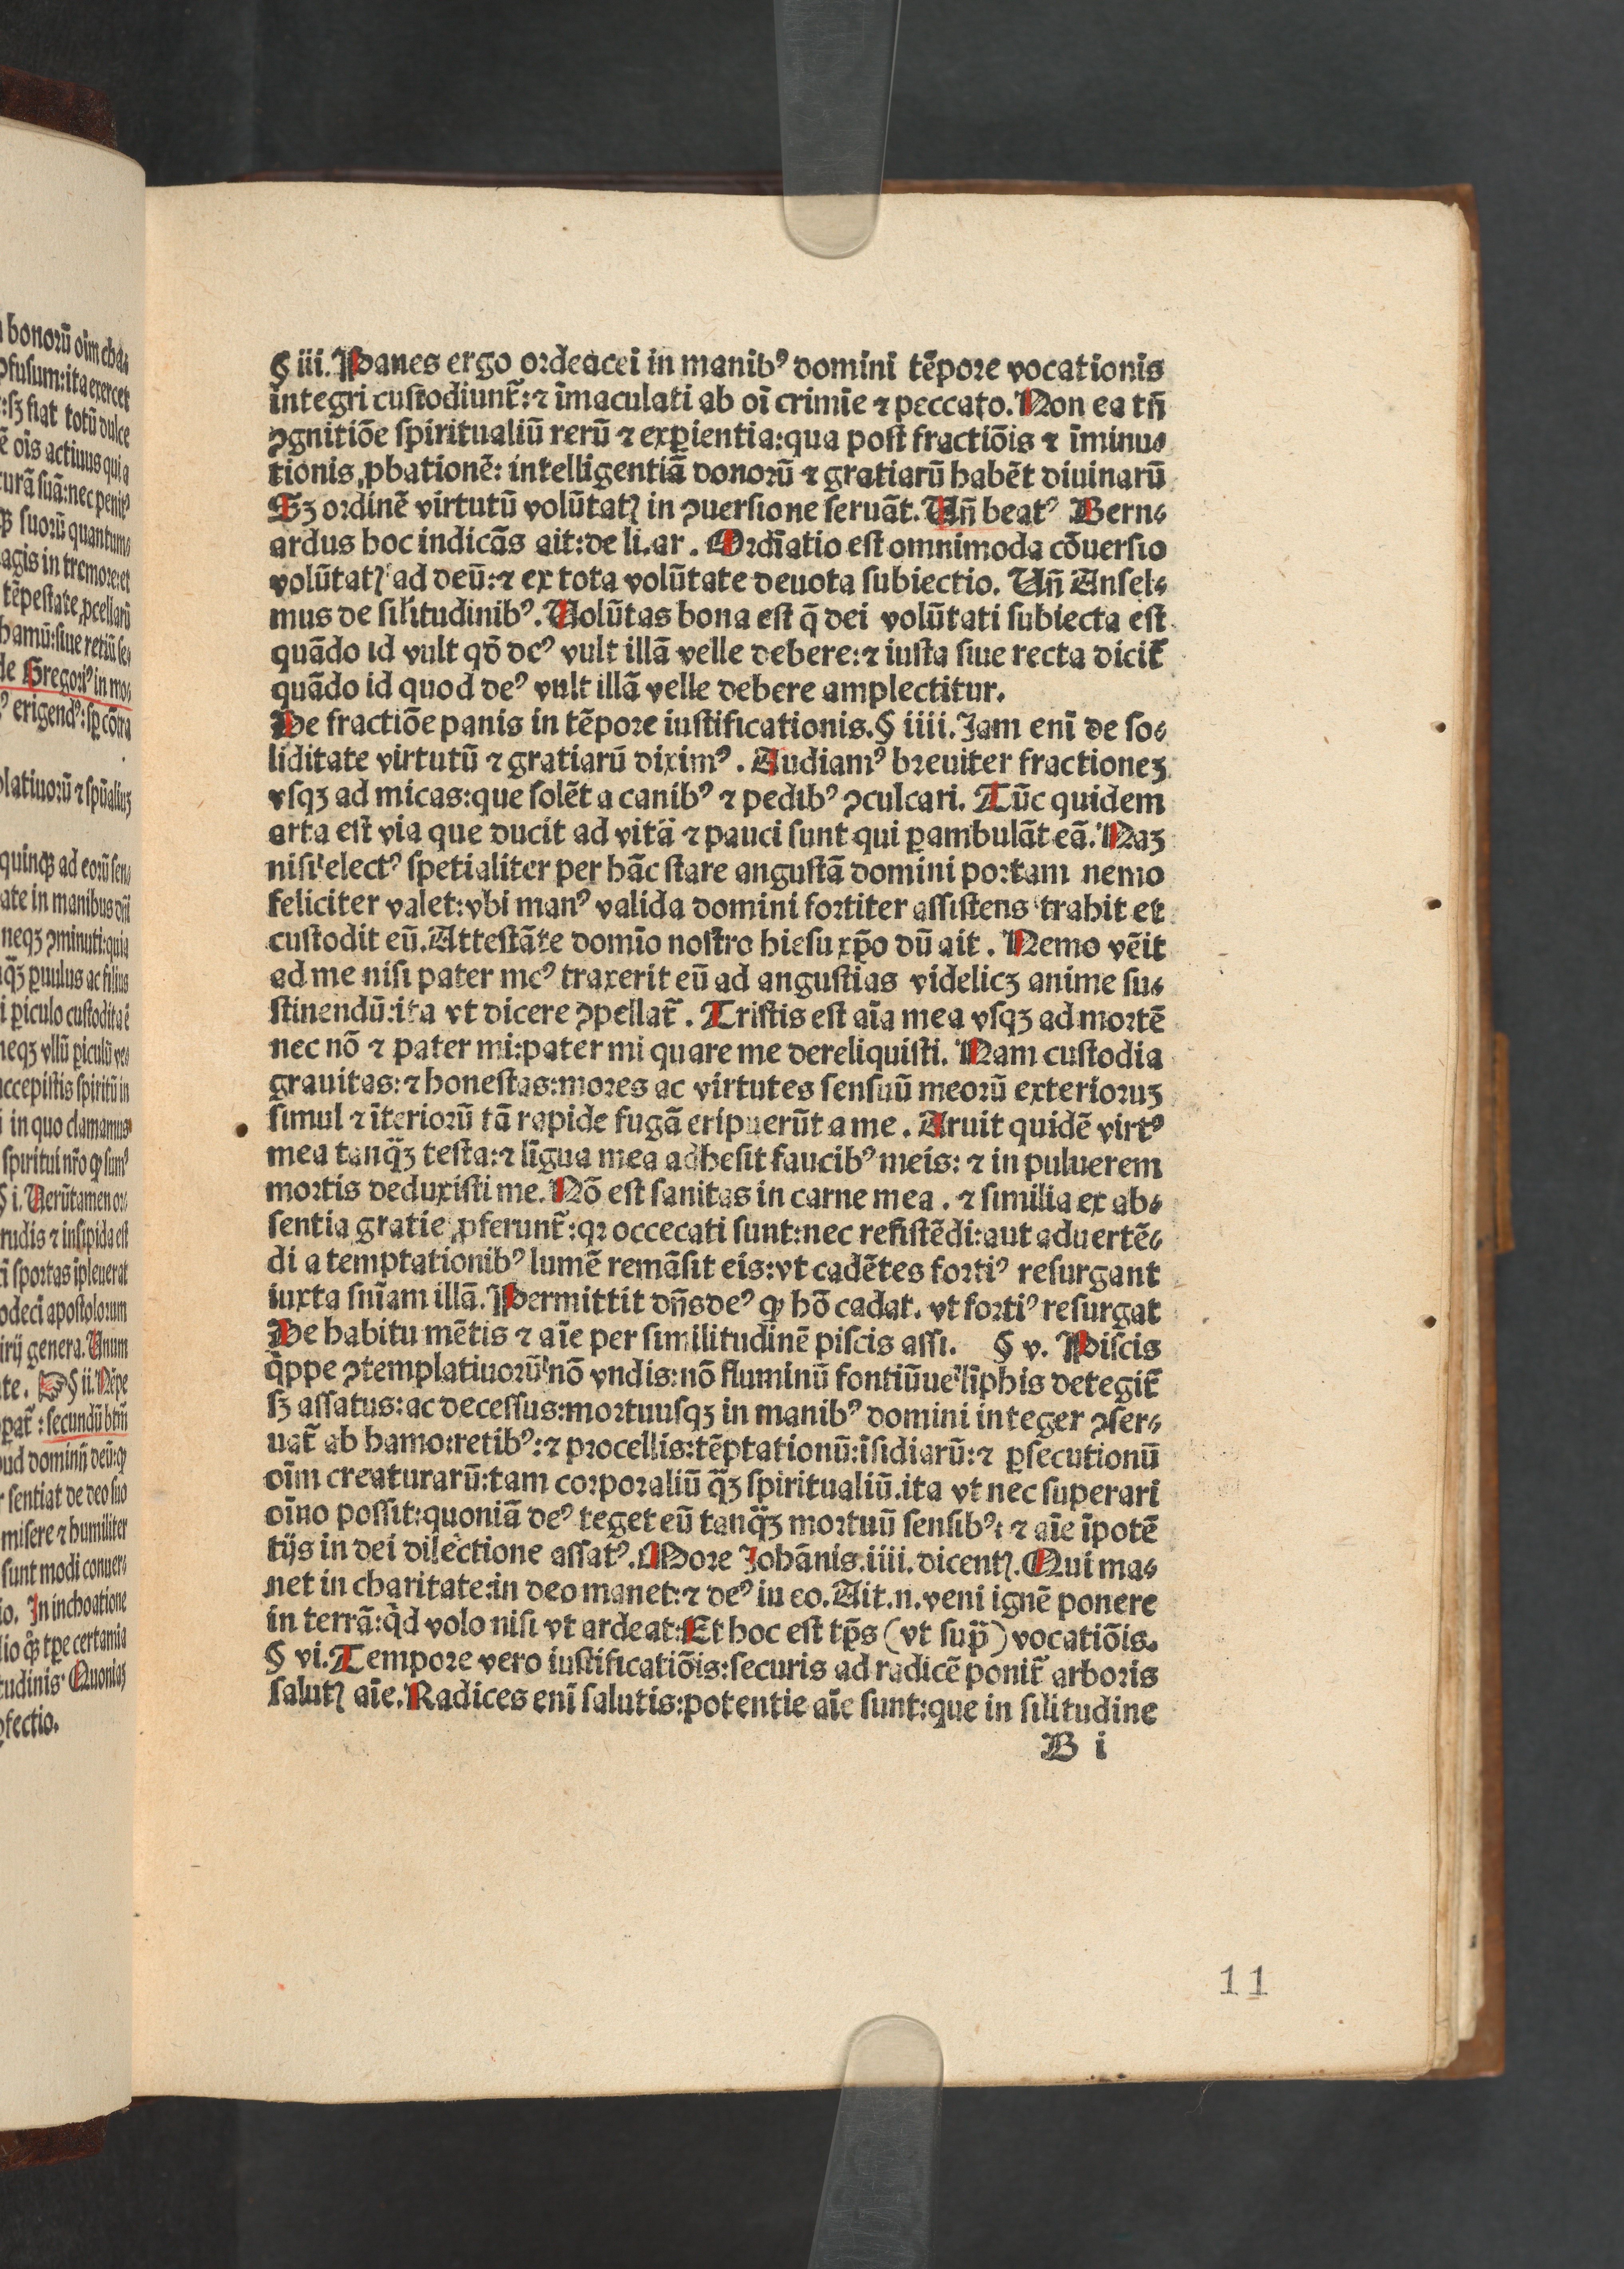 § iii. Panes ergo ordeacei in manibꝰ domini tẽpore vocationis
integri custodiunt̃: ⁊ ĩmaculati ab oĩ crimĩe ⁊ peccato. Non ea tñ
ꝯgnitiõe spiritualiũ rerũ ⁊ exꝑientia: qua post fractiõis ⁊ ĩminu⸗
tionis ꝓbationẽ: intelligentiã donorũ ⁊ gratiarũ habẽt diuinarũ
Sꝫ ordinẽ virtutũ volũtatꝭ in ꝯuersione seruãt. Vñ beatꝰ Bern⸗
ardus hoc indicãs ait: de li. ar. Ordĩatio est omnimoda cõuersio
volũtatꝭ ad deũ: ⁊ ex tota volũtate deuota subiectio. Vñ Ansel⸗
mus de silitudinibꝰ. Volũtas bona est q̃ dei volũtati subiecta est
quãdo id vult qđ deꝰ vult illã velle debere: ⁊ iusta siue recta dicit̃
quãdo id quod deꝰ vult illã velle debere amplectitur.
De fractiõe panis in tẽpore iustificationis. § iiii. Jam enĩ de so⸗
liditate virtutũ ⁊ gratiarũ diximꝰ. Audiamꝰ breuiter fractioneꝫ
vsqꝫ ad micas: que solẽt a canibꝰ ⁊ pedibꝰ ꝯculcari. Tũc quidem
arta est via que ducit ad vitã ⁊ pauci sunt qui ꝑambulãt eã. Naꝫ
nisi electꝰ spetialiter per hãc stare angustã domini portam nemo
feliciter valet: vbi manꝰ valida domini fortiter assistens trahit et
custodit eũ. Attestãte domĩo nostro hiesu xp̃o dũ ait. Nemo vẽit
ad me nisi pater meꝰ traxerit eũ ad angustias videlicꝫ anime su⸗
stinendũ: ita vt dicere ꝯpellat̃. Tristis est aĩa mea vsqꝫ ad mortẽ
nec nõ ⁊ pater mi: pater mi quare me dereliquisti. Nam custodia
grauitas: ⁊ honestas: mores ac virtutes sensuũ meorũ exterioruꝫ
simul ⁊ ĩteriorũ tã rapide fugã eripuerũt a me. Aruit quidẽ virtꝰ
mea tanq̃ꝫ testa: ⁊ lĩgua mea adhesit faucibꝰ meis: ⁊ in puluerem
mortis deduxisti me. Nõ est sanitas in carne mea. ⁊ similia ex ab⸗
sentia gratie ꝓferunt̃: qꝛ occecati sunt: nec resistẽdi: aut aduertẽ⸗
di a temptationibꝰ lumẽ remãsit eis: vt cadẽtes fortiꝰ resurgant
iuxta snĩam illã. Permittit dñs deꝰ ꝙ hõ cadat. vt fortiꝰ resurgat
De habitu mẽtis ⁊ aĩe per similitudinẽ piscis assi. § v. Piscis
q̃ppe ꝯtemplatiuorũ nõ vndis: nõ fluminũ fontiũue lĩphis detegit̃
sꝫ assatus: ac decessus: mortuusqꝫ in manibꝰ domini integer ꝯser⸗
uat̃ ab hamo: retibꝰ: ⁊ procellis: tẽptationũ: ĩsidiarũ: ⁊ ꝑsecutionũ
oĩm creaturarũ: tam corporaliũ q̃ꝫ spiritualiũ. ita vt nec superari
oĩno possit: quoniã deꝰ teget eũ tanq̃ꝫ mortuũ sensibꝰ: ⁊ aĩe ĩpotẽ
tijs in dei dilectione assatꝰ. More Johãnis. iiii. dicentꝭ. Qui ma⸗
net in charitate: in deo manet: ⁊ deꝰ in eo. Ait. n. veni ignẽ ponere
in terrã: q̃d volo nisi vt ardeat: Et hoc est tꝑs (vt sup̃) vocatiõis.
§ vi. Tempore vero iustificatiõis: securis ad radicẽ ponit̃ arboris
salutꝭ aĩe. Radices enĩ salutis: potentie aĩe sunt: que in silitudine
B i
11